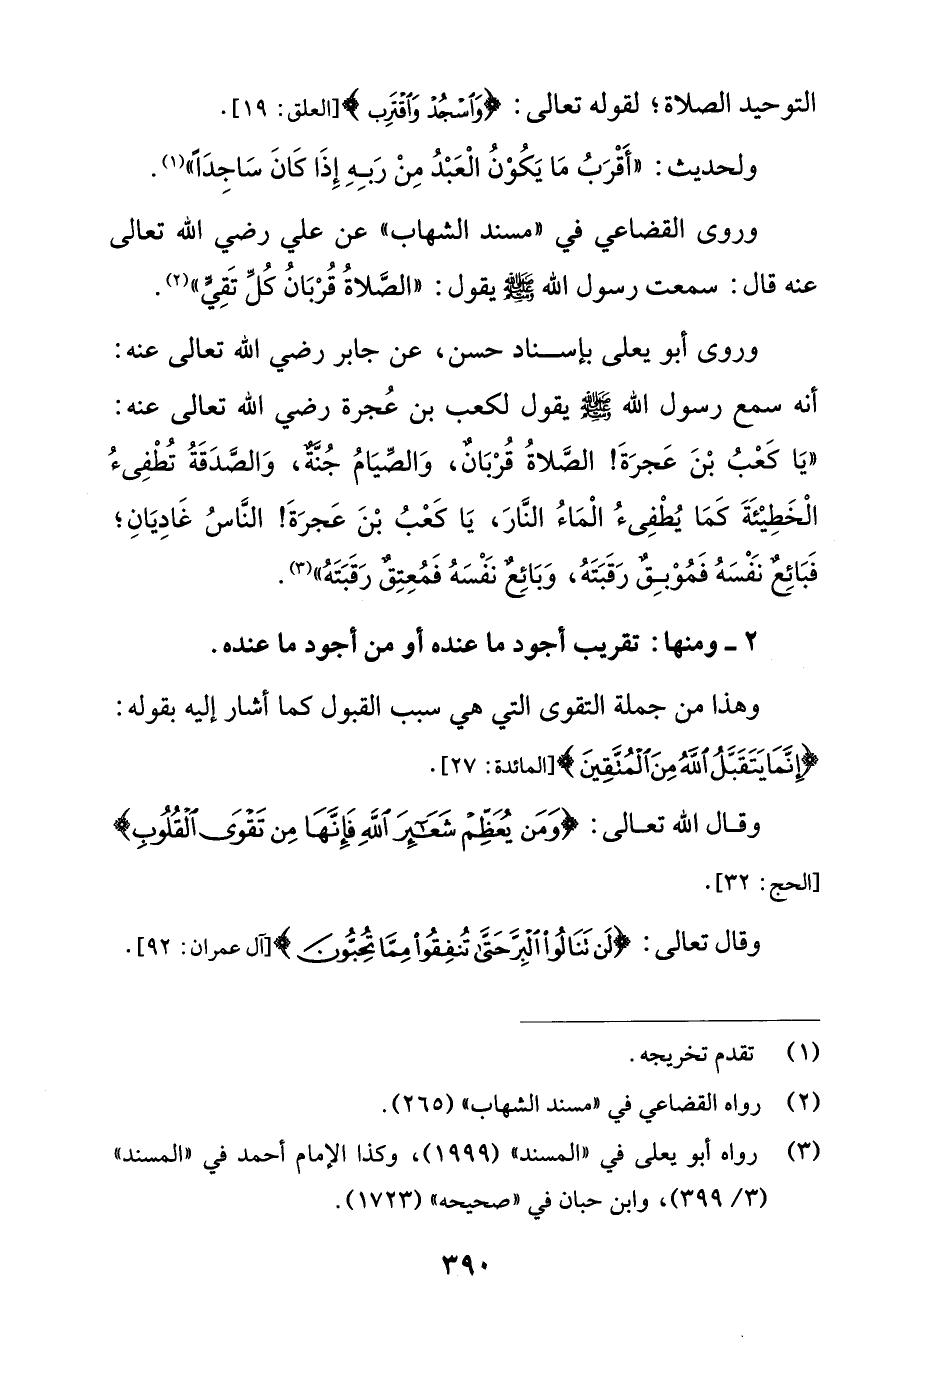 التوحيد الصلاة؛ لقوله تعالى: ﴿وَٱسْجُدْ وَٱقْتَرِب﴾[العلق: ١٩].
ولحديث: «أَقْرَبُ مَا يَكُوْنُ الْعَبْدُ مِنْ رَبِهِ إِذَا كَانَ سَاجِدَاً»(١).
وروى القضاعي في «مسند الشهاب» عن علي رضي الله تعالى
عنه قال: سمعت رسول الله ﷺ يقول: «الصَّلاةُ قُرْبَانُ كُلِّ تَقِيٍّ»(٢).
وروى أبو يعلى بإسناد حسن، عن جابر رضي الله تعالى عنه:
أنه سمع رسول الله ﷺ يقول لكعب بن عُجرة رضي الله تعالى عنه:
«يَا كَعْبُ بْنَ عَجرَةَ! الصَّلاةُ قُرْبَانٌ، وَالصِّيَامُ جُنَّةٌ، وَالصَّدَقَةُ تُطْفِىءُ
الْخَطِيْئَةَ كَمَا يُطْفِىءُ الْمَاءُ النَّارَ، يَا كَعْبُ بْنَ عَجرَةَ! النَّاسُ غَادِيَانِ؛
فَبَائِعٌ نَفْسَهُ فَمُوْبِقٌ رَقَبَتَهُ، وَبَائِعٌ نَفْسَهُ فَمُعتِقٌ رَقَبَتَهُ»(٣).
٢ ـ ومنها: تقريب أجود ما عنده أو من أجود ما عنده.
وهذا من جملة التقوى التي هي سبب القبول كما أشار إليه بقوله:
﴿إِنَّمَا يَتَقَبَّلُ ٱللَّهُ مِنَ ٱلْمُتَّقِينَ﴾[المائدة: ٢٧].
وقال الله تعالى: ﴿وَمَن يُعَظِّمْ شَعَٰٓئِرَ ٱللَّهِ فَإِنَّهَا مِن تَقْوَى ٱلْقُلُوبِ﴾
[الحج: ٣٢].
وقال تعالى: ﴿لَن نَنَالُوا۟ ٱلْبِرَّ حَتَّىٰ تُنفِقُوا۟ مِمَّا تُحِبُّونَ﴾[آل عمران: ٩٢].
(١) تقدم تخريجه.
(٢) رواه القضاعي في «مسند الشهاب» (٢٦٥).
(٣) رواه أبو يعلى في «المسند» (١٩٩٩)، وكذا الإمام أحمد في «المسند»
(٣/ ٣٩٩)، وابن حبان في «صحيحه» (١٧٢٣).
٣٩٠